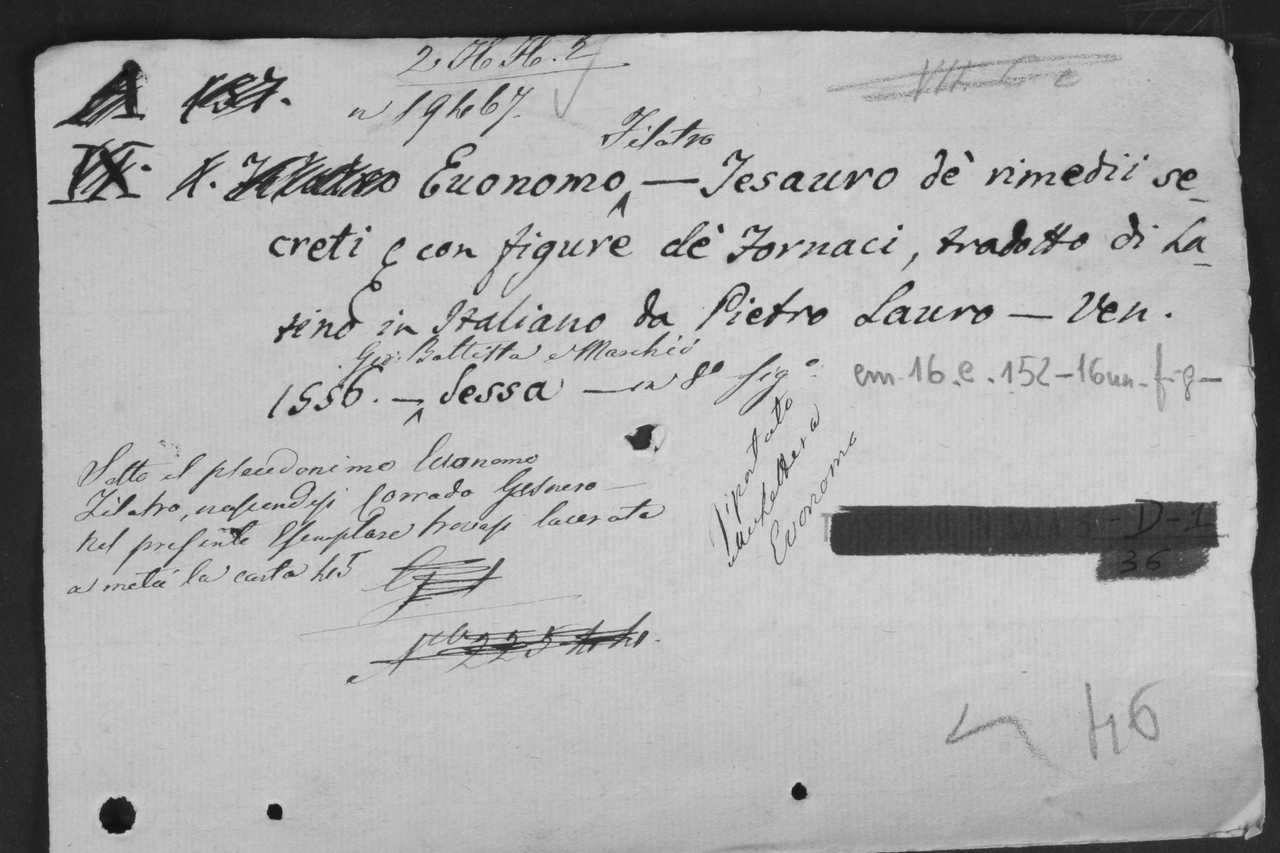 2. H H. 5
n 19467.
Filatro
IX. Euonomo — Tesauro dè rimedii se-
creti e con figure dè Fornaci, tradotto di La-
tino in Italiano da Pietro Lauro — Ven.
Gio: Battista e Marchiò
1556. — Sessa — in 8° fig°.
cm. 16. e. 152-16nn. fig-
Sotto il pseudonimo Euonomo
Filatro, nascondesi Corrado Gesnero —
Nel presente Esemplare trovasi lacerata
a metà la carta 45
riportato
Euonomo
IN SALA 5-D-1
36
46